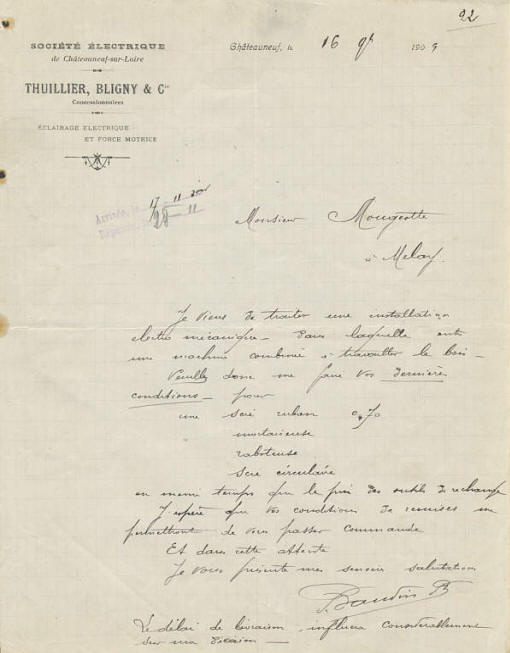 22
SOCIÉTÉ ÉLECTRIQUE
de Châteauneuf-sur-Loire
THUILLIER, BLIGNY & Cie
Concessionnaires
ÉCLAIRAGE ELECTRIQUE
ET FORCE MOTRICE
Châteauneuf, le 16 9bre 1909
Arrivée, le 17-11
28-11
Monsieur Mougeotte
à Melay
Je viens de traiter une installation
electro mécanique - dans laquelle entre
une machine combinée à travailler le bois -
Veuillez donc me faire vos dernières
conditions - pour
une scie ruban 0,70
mortaiseuse
raboteuse
scie circulaire
en meme temps que le prix des outils de rechange
J'espère que vos conditions de remises me
permettront de vous passer commande
Et dans cette attente
Je vous présente mes sincères salutations
Baudin
Le délai de livraison influera considérablement
sur ma décision -